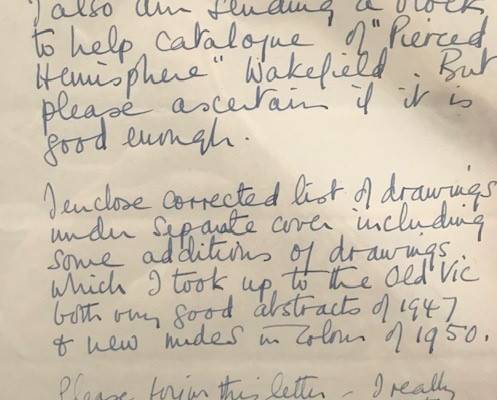 I also am sending a block
to help catalogue of "Pierced
Hemisphere" Wakefield. But
please ascertain if it is
good enough.
I enclose corrected list of drawings
under separate cover including
some additions of drawings
which I took up to the Old Vic
both very good abstracts of 1947
& new nudes in colour of 1950.
Please forgive this letter – I really